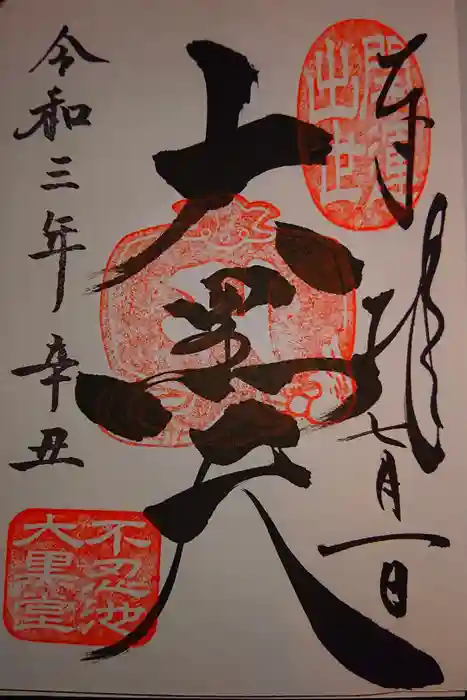 奉拝
七月一日
開運
出世
大黒天
令和三年辛丑
不忍池
大黒堂